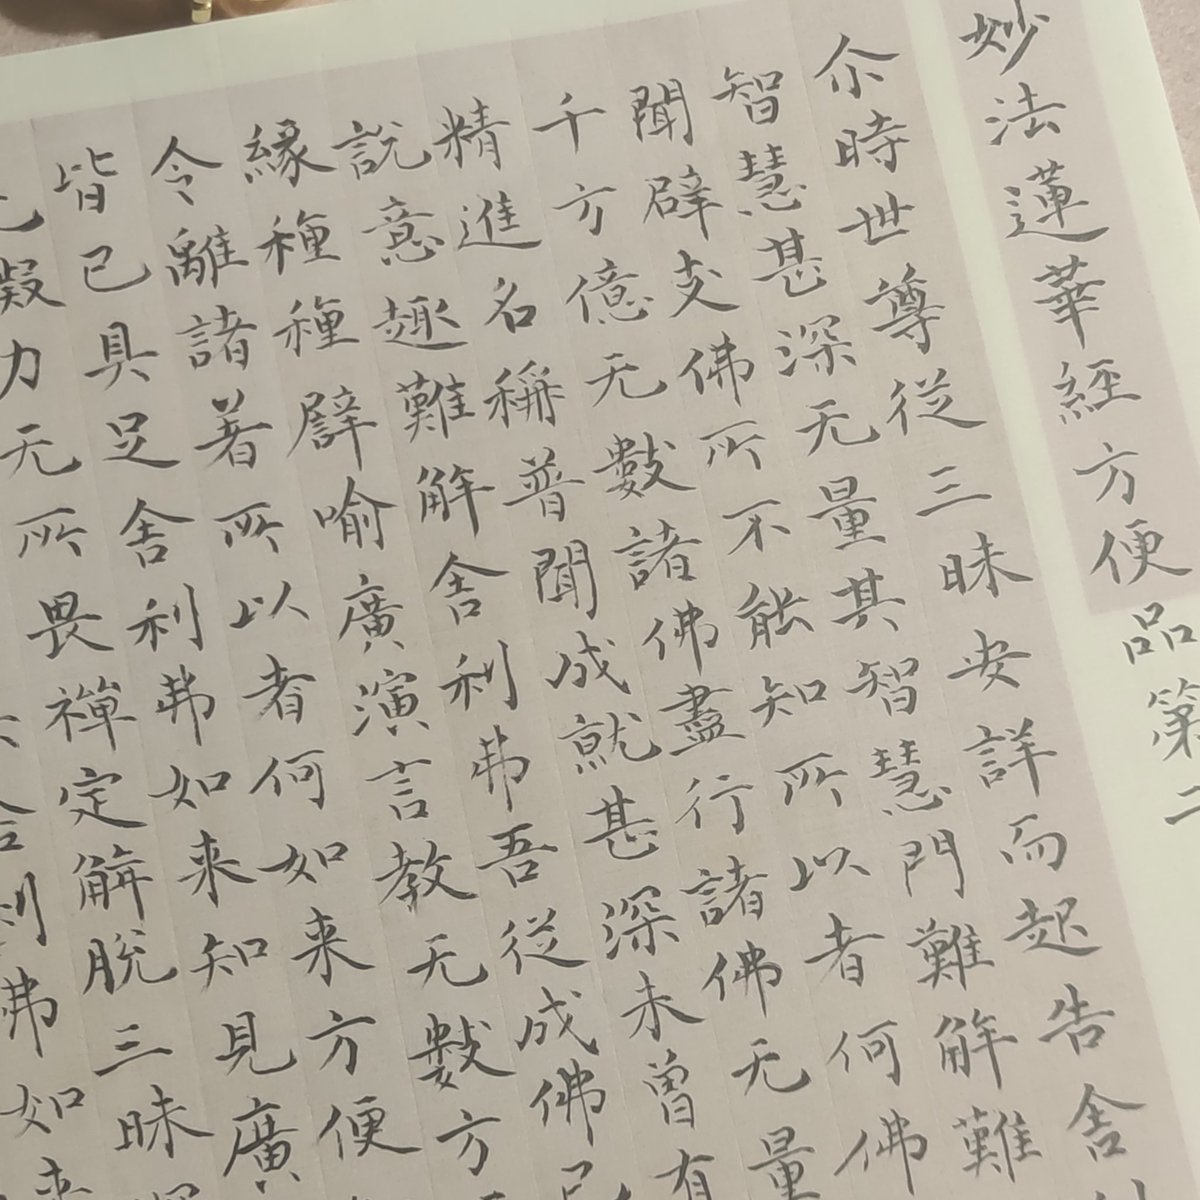 妙法蓮華經方便品第二
尒時世尊從三昧安詳而起告舍
智慧甚深无量其智慧門難解難
聞辟支佛所不能知所以者何佛
千万億无數諸佛盡行諸佛无量
精進名稱普聞成就甚深未曾有
說意趣難解舍利弗吾從成佛已
緣種種譬喻廣演言教无數方
令離諸著所以者何如来方便
皆已具足舍利弗如来知見廣
力无所畏禪定解脫三昧
舍利弗如来